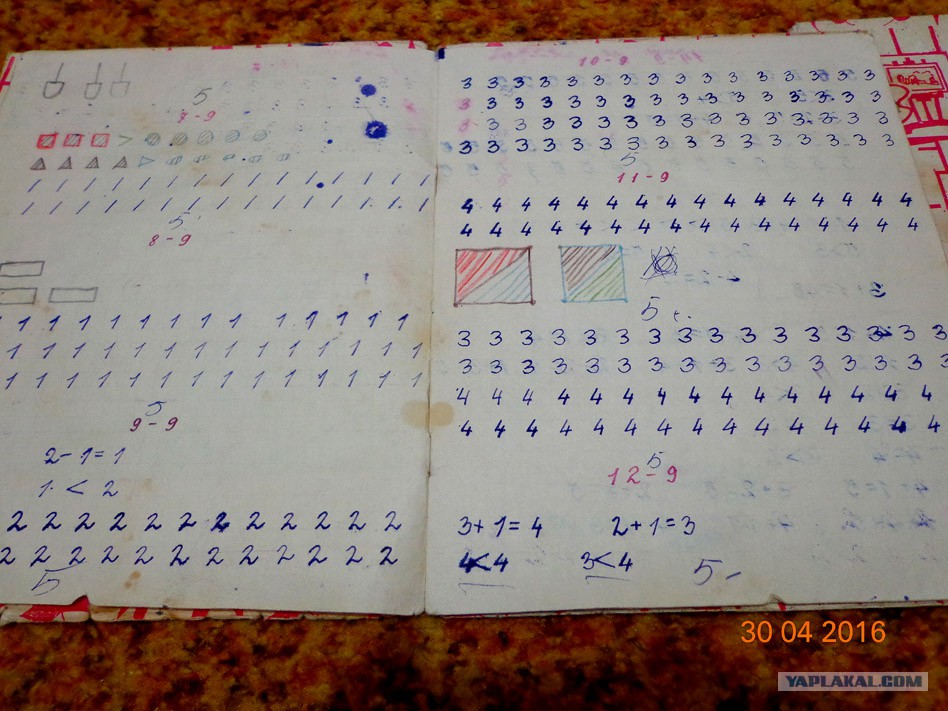 5
7-9
>
/ / / / / / / / / / / / / / /
/ / / / / / / / / / / / / / /
5
8-9
1 1 1 1 1 1 1 1 1 1 1 1 1 1
1 1 1 1 1 1 1 1 1 1 1 1 1 1
1 1 1 1 1 1 1 1 1 1 1 1 1 1
5
9-9
2-1=1
1. < 2
2 2 2 2 2 2 2 2 2 2 2 2
2 2 2 2 2 2 2 2 2 2 2 2
5
10-9
3 3 3 3 3 3 3 3 3 3 3 3 3 3 3 3
3 3 3 3 3 3 3 3 3 3 3 3 3 3 3 3
3 3 3 3 3 3 3 3 3 3 3 3 3 3 3 3
3 3 3 3 3 3 3 3 3 3 3 3 3 3 3 3
5
11-9
4 4 4 4 4 4 4 4 4 4 4 4 4 4 4 4
4 4 4 4 4 4 4 4 4 4 4 4 4 4 4 4
5
3 3 3 3 3 3 3 3 3 3 3 3 3 3 3 3
3 3 3 3 3 3 3 3 3 3 3 3 3 3 3 3
4 4 4 4 4 4 4 4 4 4 4 4 4 4 4
4 4 4 4 4 4 4 4 4 4 4 4 4 4 4
5
12-9
3+1=4 2+1=3
4<4 3<4 5-
30 04 2016
YAPLAKAL.COM